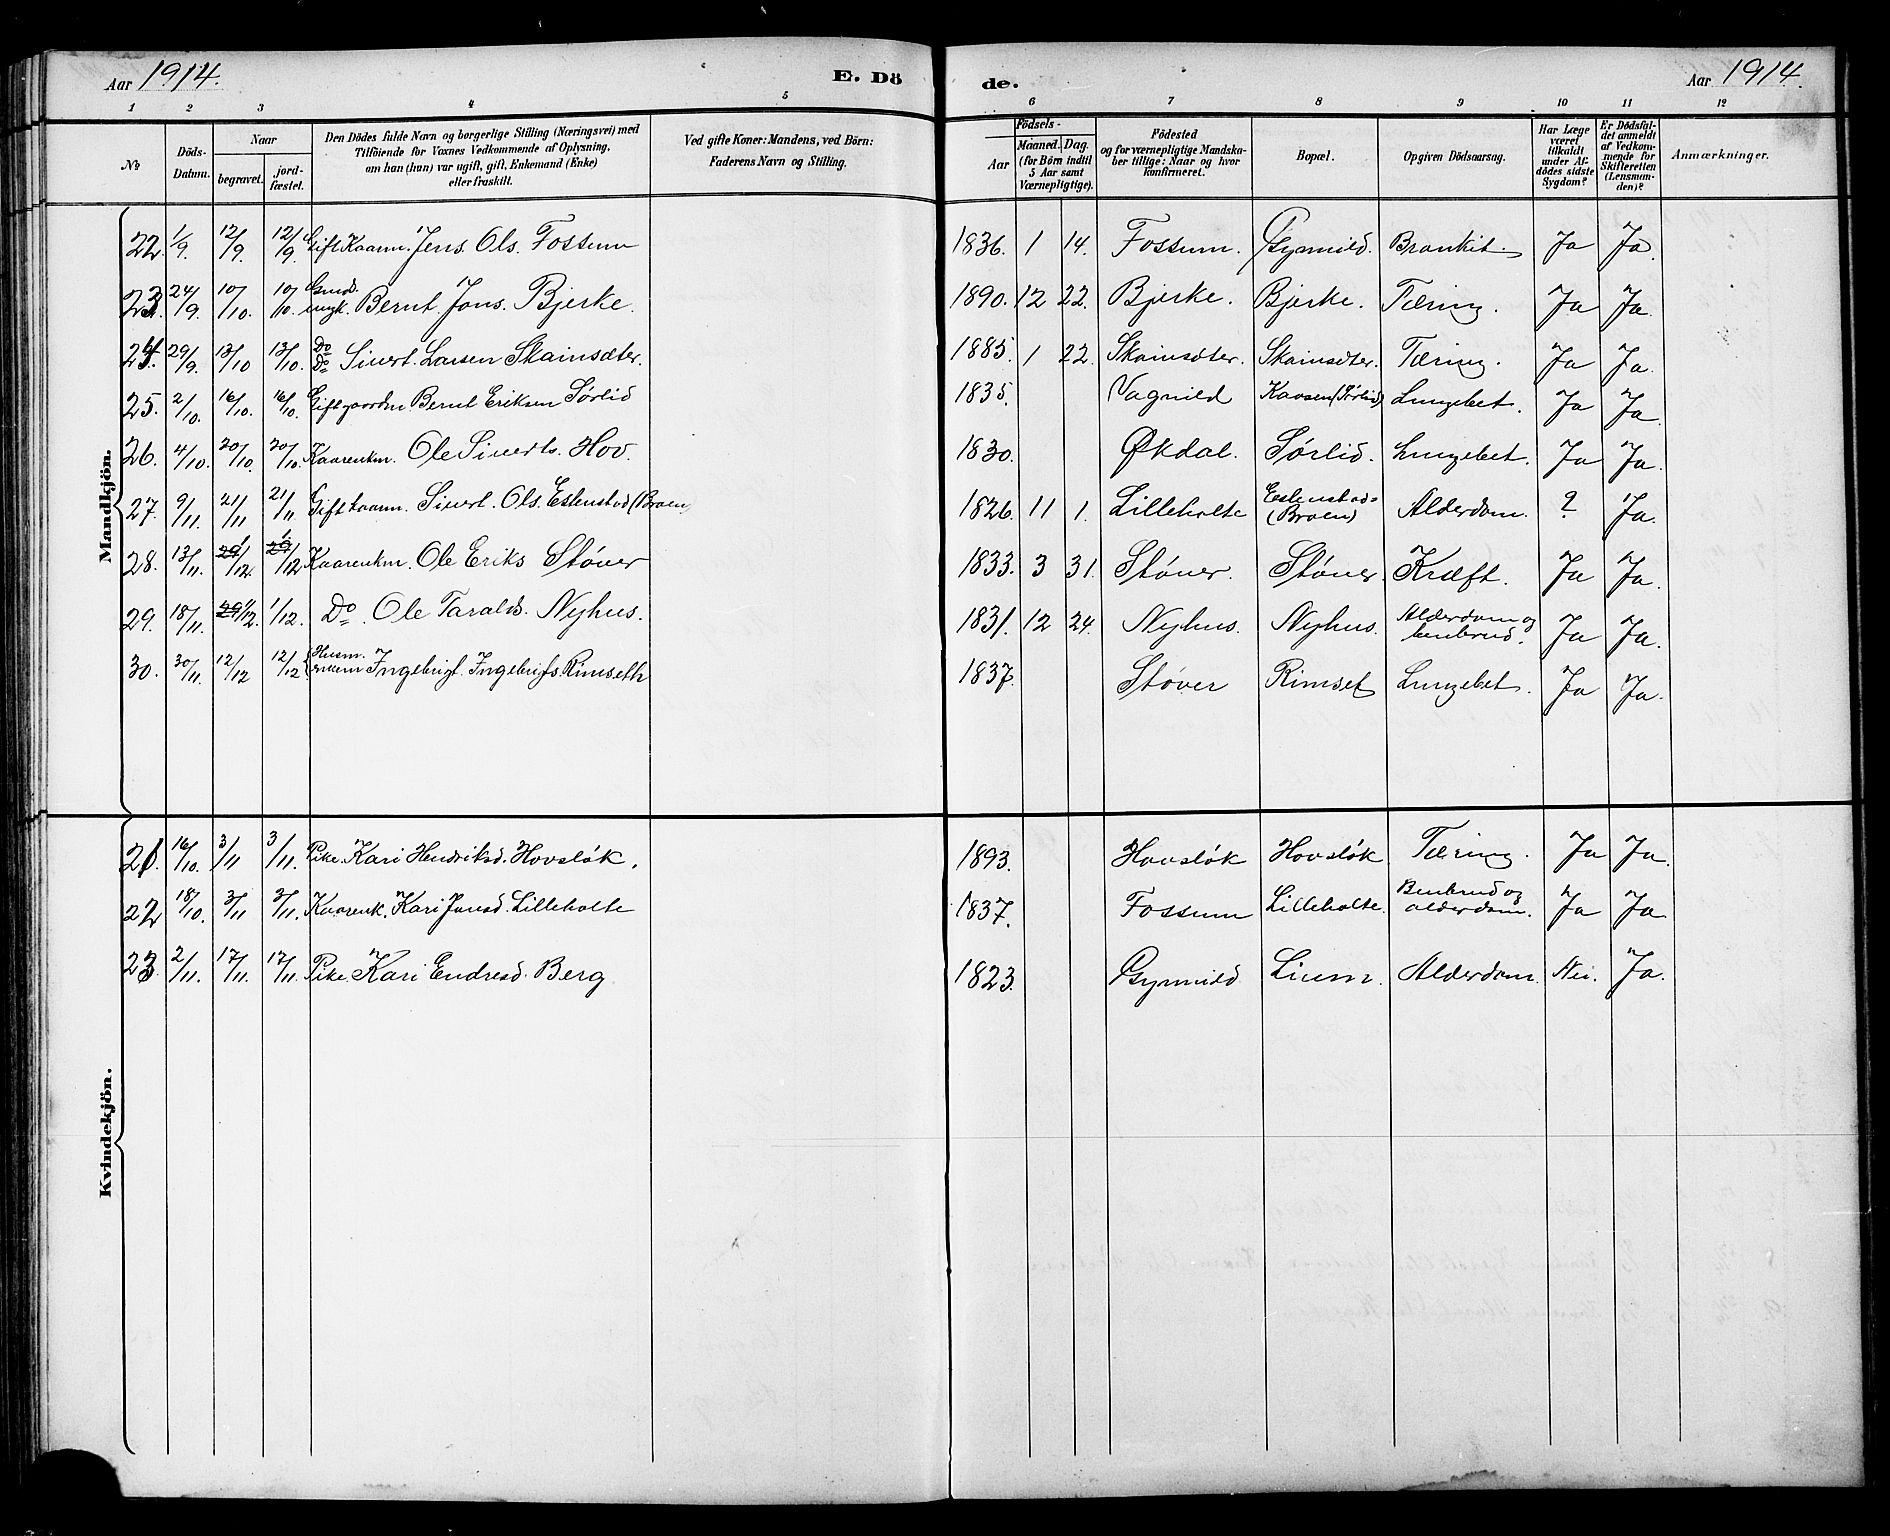 Aar 1914. E. Dö de. Aar 1914.
1 2 3 4 5 6 7 8 9 10 11 12
№ Döds-Datum. Naar begravet. jordfæstet. Den Dödes fulde Navn og borgerlige Stilling (Næringsvei) med Tilföiende for Voxnes Vedkommende af Oplysning, om han (hun) var ugift, gift, Enkemand (Enke) eller fraskilt. Ved gifte Koner: Mandens, ved Börn: Faderens Navn og Stilling. Födsels- Aar Maaned. Dag. (for Börn indtil 5 Aar samt Værnepligtige). Födested og for værnepligtige Mandskaber tillige: Naar og hvor konfirmeret. Bopæl. Opgiven Dödsaarsag. Har Læge været tilkaldt under Afdödes sidste Sygdom? Er Dödsfaldet anmeldt af Vedkommende for Skifteretten (Lensmanden)? Anmærkninger.
Mandkjön.
22. 1/9 12/9 12/9 Gift Kaarm. Jens Ols. Fossum 1836. 1 14. Fossum. Gynnild. Bronkit. Ja Ja.
23. 24/9. 10/10. 10/10. Gmd. ungk. Bernt Jons. Bjerke. 1890. 12 22. Bjerke. Bjerke. Tæring. Ja Ja.
24. 29/9. 13/10 13/10. Do Do Sivert Larsen Skainsæter. 1885. 1 22. Skainsæter. Skainsæter. Tæring. Ja Ja.
25. 2/10. 16/10. 16/10. Gift gaardm Bernt Eriksen Sørlid 1835. Vagnild Kaasen (Sørlid) Lungebet. Ja Ja.
26. 4/10. 20/10. 20/10. Kaarenkm. Ole Siverts. Hov. 1830. Økdal. Sørlid. Lungebet. Ja Ja.
27. 9/11. 21/11 21/11. Gift kaarm. Sivert Ols. Estenstad (Broen) 1826. 11 1. Lilleholte Estenstad (Broen) Alderdom. ? Ja.
28. 13/11. 1/12. 1/12 Kaarenkm. Ole Eriks Støver 1833. 3 31. Støver. Støver. Kræft. Ja Ja.
29. 18/11. 1/12. 1/12. Do. Ole Taralds. Nyhus. 1831. 12 24. Nyhus. Nyhus. Alderdom og benbrud. Ja Ja.
30. 30/11. 12/12 12/12. Husm. enkem Ingebrigt Ingebrigts. Rimseth 1837. Støver Rimset Lungebet. Ja Ja.
Kvindekjön.
21. 16/10. 3/11 3/11. Pike Kari Henriksd. Hovsløk. 1893. Hovsløk Hovsløk Tæring. Ja Ja.
22 18/10. 3/11 3/11. Kaarenk. Kari Jonsd. Lilleholte 1837. Fossum Lilleholte. Benbrud og alderdom. Ja Ja
23. 2/11. 17/11. 17/11. Pike Kari Endresd. Berg 1823. Gynnild Lium. Alderdom. Nei. Ja.